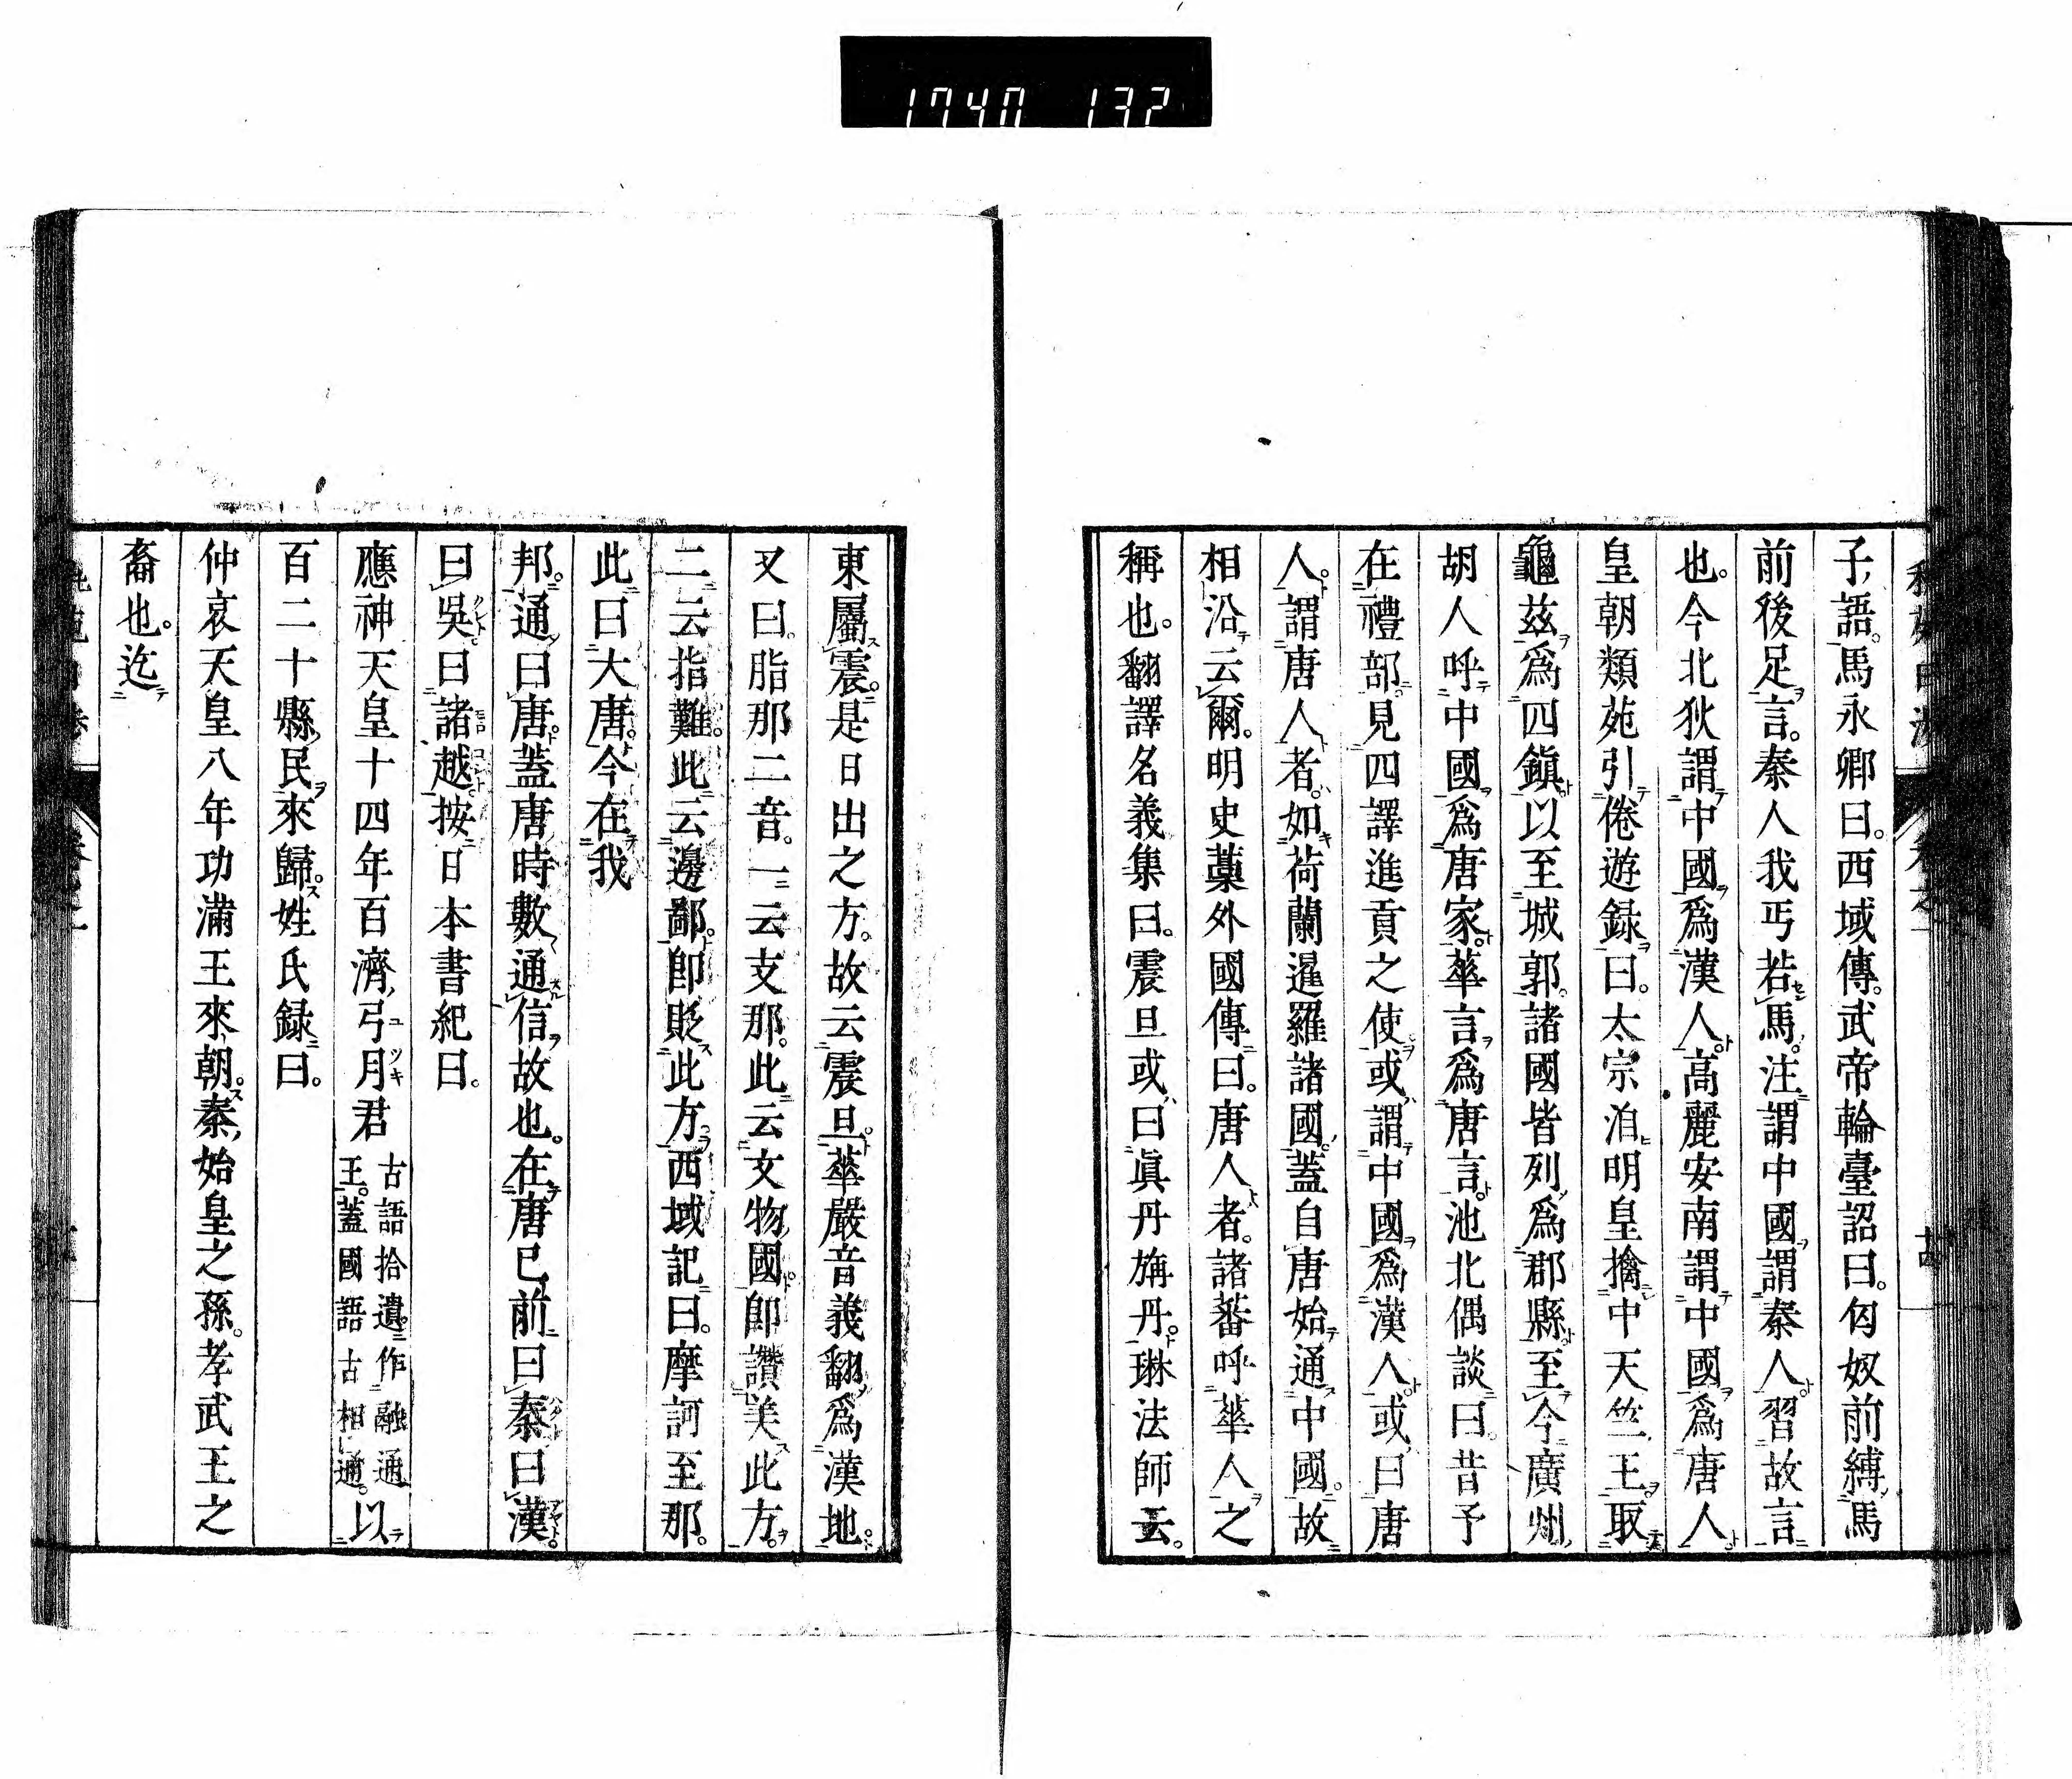 1740 132
子語。馬永卿曰。西域傳。武帝輪臺詔曰。匈奴前縛馬
前後足言。秦人我丐若馬。注謂中國謂秦人習故言
也。今北狄謂中國爲漢人。高麗安南謂中國爲唐人
皇朝類苑引倦遊録曰。太宗洎明皇擒中天竺王。取
龜茲爲四鎭以至城郭。諸國皆列爲郡縣至今廣州
胡人呼中國爲唐家。華言爲唐言。池北偶談曰。昔予
在禮部見四譯進貢之使。或謂中國爲漢人。或曰唐
人。謂唐人者。如荷蘭暹羅諸國。蓋自唐始通中國。故
相沿云爾。明史藁外國傳曰。唐人者。諸蕃呼華人之
稱也。翻譯名義集曰。震旦或曰眞丹旃丹。琳法師云。
東屬震。是日出之方。故云震旦。華嚴音義翻爲漢地。
又曰。脂那二音。一云支那。此云文物國。卽讚美此方。
二云指難。此云邊鄙。卽貶此方。西域記曰。摩訶至那。
此曰大唐。今在我
邦。通曰唐。蓋唐時數通信故也。在唐已前曰秦曰漢。
曰吳曰諸越按日本書紀曰。
應神天皇十四年百濟弓月君古語拾遺。作融通王。蓋國語古相通。以
百二十縣民來歸。姓氏録曰。
仲哀天皇八年功滿王來朝。秦始皇之孫。孝武王之
裔也。迄